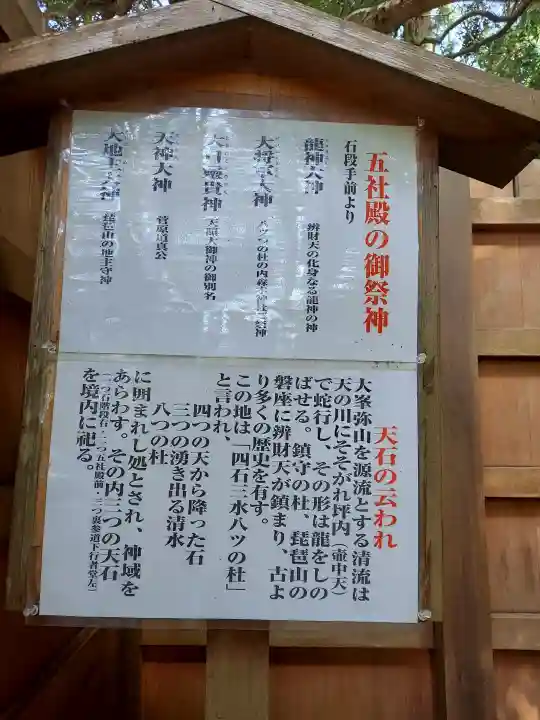 五社殿の御祭神
石段手前より
龍神大神 辨財天の化身なる龍神の神
大将軍大神 八ツの杜の内森本神社の祭神
大日孁貴神 天照大御神の御別名
天神大神 菅原道真公
大地主大神 琵琶山の地主守神
天石の云われ
大峯弥山を源流とする清流は
天の川にそそがれ坪内（壷中天）
で蛇行し、その形は龍をしの
ばせる。鎮守の杜、琵琶山の
磐座に辨財天が鎮まり、古よ
り多くの歴史を有す。
この地は「四石三水八ツの杜」
と言われ、
四つの天から降った石
三つの湧き出る清水
八つの杜
に囲まれし処とされ、神域を
あらわす。その内三つの天石
（一つ石階段右・二つ五社殿前・三つ裏参道下行者堂左）
を境内に祀る。